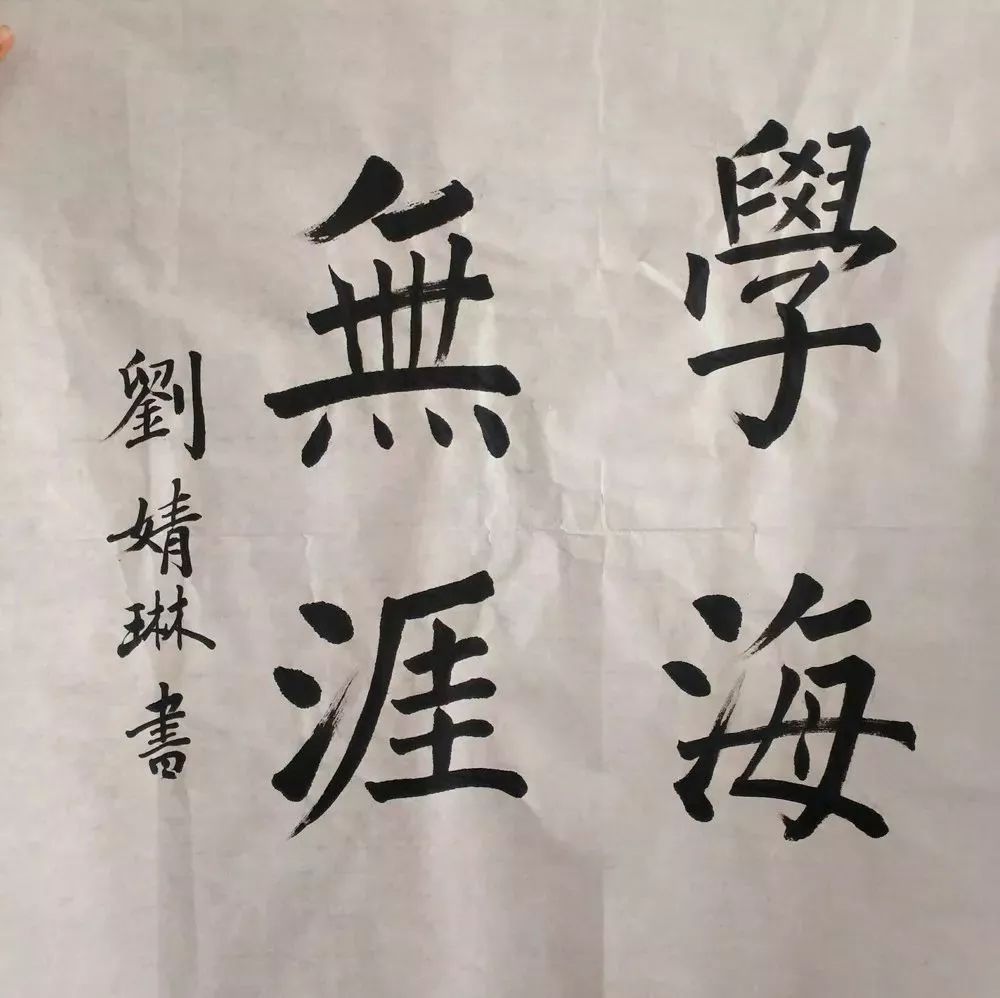 學海
無涯
劉婧琳書